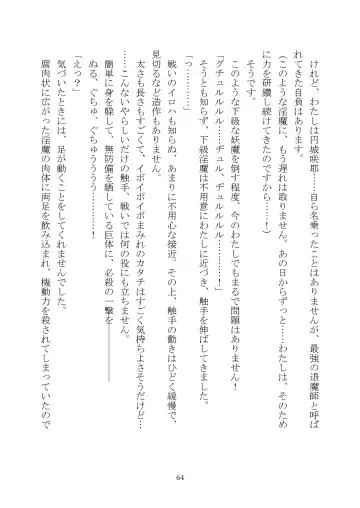 けれど、わたしは円城咲耶……自ら名乗ったことはありませんが、最強の退魔師と呼ば
れてきた自負はあります。
（このような淫魔に、もう遅れは取りません。あの日からずっと……わたしは、そのため
に力を研鑽し続けてきたのですから……！）
そうです。
このような下級の妖魔を倒す程度、今のわたしでもまるで問題はありません！
「グチュルルルル……ヂュル、ヂュルルルル…………！」
そうとも知らず、下級淫魔は不用意にわたしに近づき、触手を伸ばしてきました。
「っ…………」
戦いのイロハも知らぬ、あまりに不用心な接近。その上、触手の動きはひどく緩慢で、
見切るなど造作もありません。
太さも長さもすごくて、イボイボイボまみれのカタチはすごく気持ちよさそうだけど…
……こんないやらしいだけの触手、戦いでは何の役にも立ちません。
簡単に身を躱して、無防備を晒している巨体に、必殺の一撃を――――
ぬる、ぐちゅ、ぐちゅうううう……！
「えっ？」
気づいたときには、足が動くことをしてくれませんでした。
腐肉状に広がった淫魔の肉体に両足を飲み込まれ、機動力を殺されてしまっていたので
64